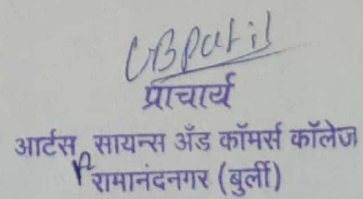 UBPatil
प्राचार्य
आर्टस, सायन्स अँड कॉमर्स कॉलेज
रामानंदनगर (बुर्ली)